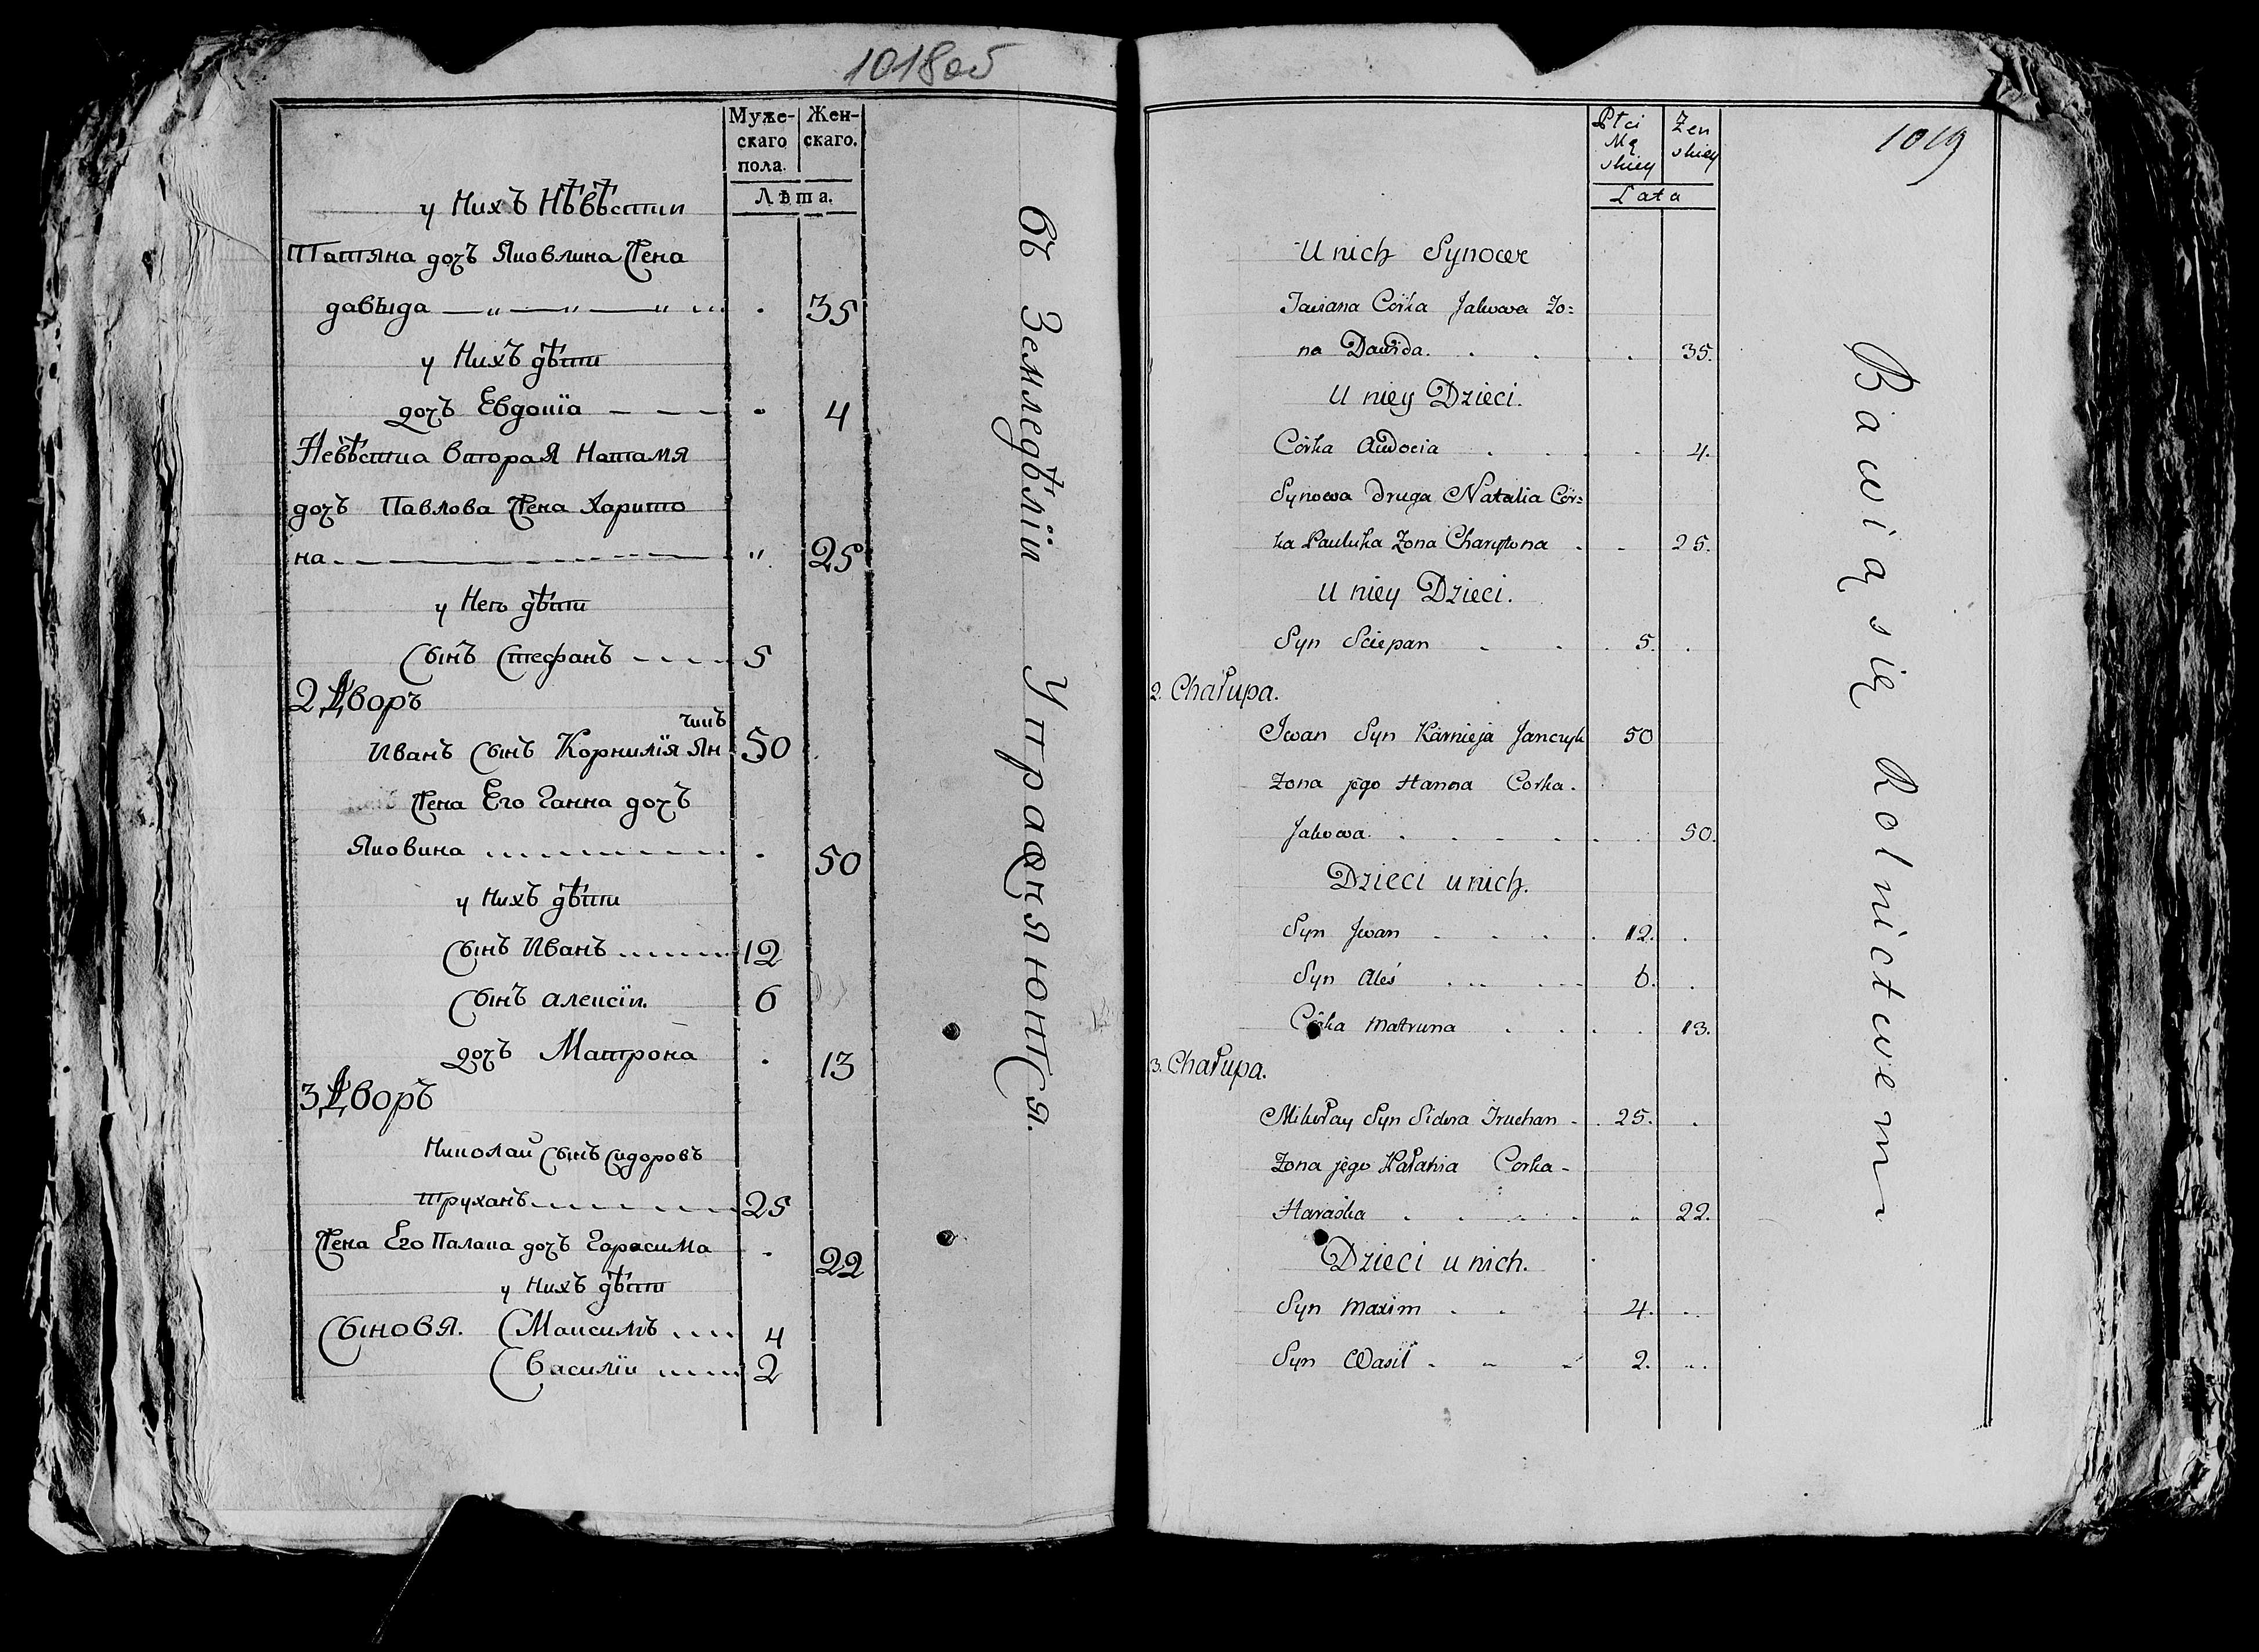 1018об
Муже-
скаго
пола.
Жен-
скаго.
Лѣта.
у Нихъ Нѣвѣстки
Татяна дочъ Яковлина Жена
давыда 35
у Нихъ дѣти
дочъ Евдокїа 4
Невѣстка вторая Наталя
дочъ Павлова Жена Харито
на 25
у Него дѣти
Сынъ Стефанъ 5
2 Дворъ
чикъ
Иванъ Сынъ Корнилїя Ян 50
Жена Его Ганна дочъ
Яковина 50
у Нихъ дѣти
Сынъ Иванъ 12
Сынъ алексїи. 6
дочъ Матрона 13
3 Дворъ
Николай Сынъ Сидоровъ
Труханъ 25
Жена Его Палага дочъ Гарасима 22
у Нихъ дѣти
Сыновя. Максимъ 4
Василїи 2
въ Земледѣлїи Упражняютса.
1019
Płci
Mę
skiey
Zen
skiey
Lata
U nich Synowe
Taciana Córka Jakowa Żo=
na Dawida. 35.
U niey Dzieci.
Córka Audocia 4.
Synowa druga Natalia Cór=
ka Pauluka Żona Charytona 25.
U niey Dzieci.
Syn Sciepan 5.
2. Chałupa.
Iwan Syn Karnieja Janczyk 50
Żona jego Hanna Corka.
Jakowa. 50.
Dzieci u nich.
Syn Jwan 12.
Syn Aleś 6.
Córka Matruna 13.
3. Chałupa.
Mikołay Syn Sidora Truchan 25.
Żona jego Pałahia Corka-
Haraśka 22.
Dzieci u nich.
Syn Maxim 4.
Syn Wasil 2.
Bawią się Rolnictwem